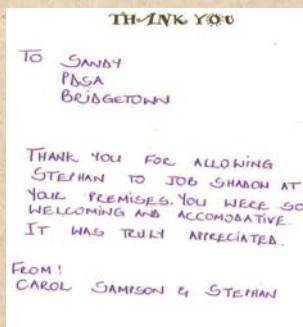 THANK YOU
TO SANDY
PASA
BRIDGETOWN
THANK YOU FOR ALLOWING
STEPHAN TO JOB SHADOW AT
YOUR PREMISES. YOU WERE SO
WELCOMING AND ACCOMODATIVE
IT WAS TRULY APPRECIATED.
FROM:
CAROL SAMPSON & STEPHAN